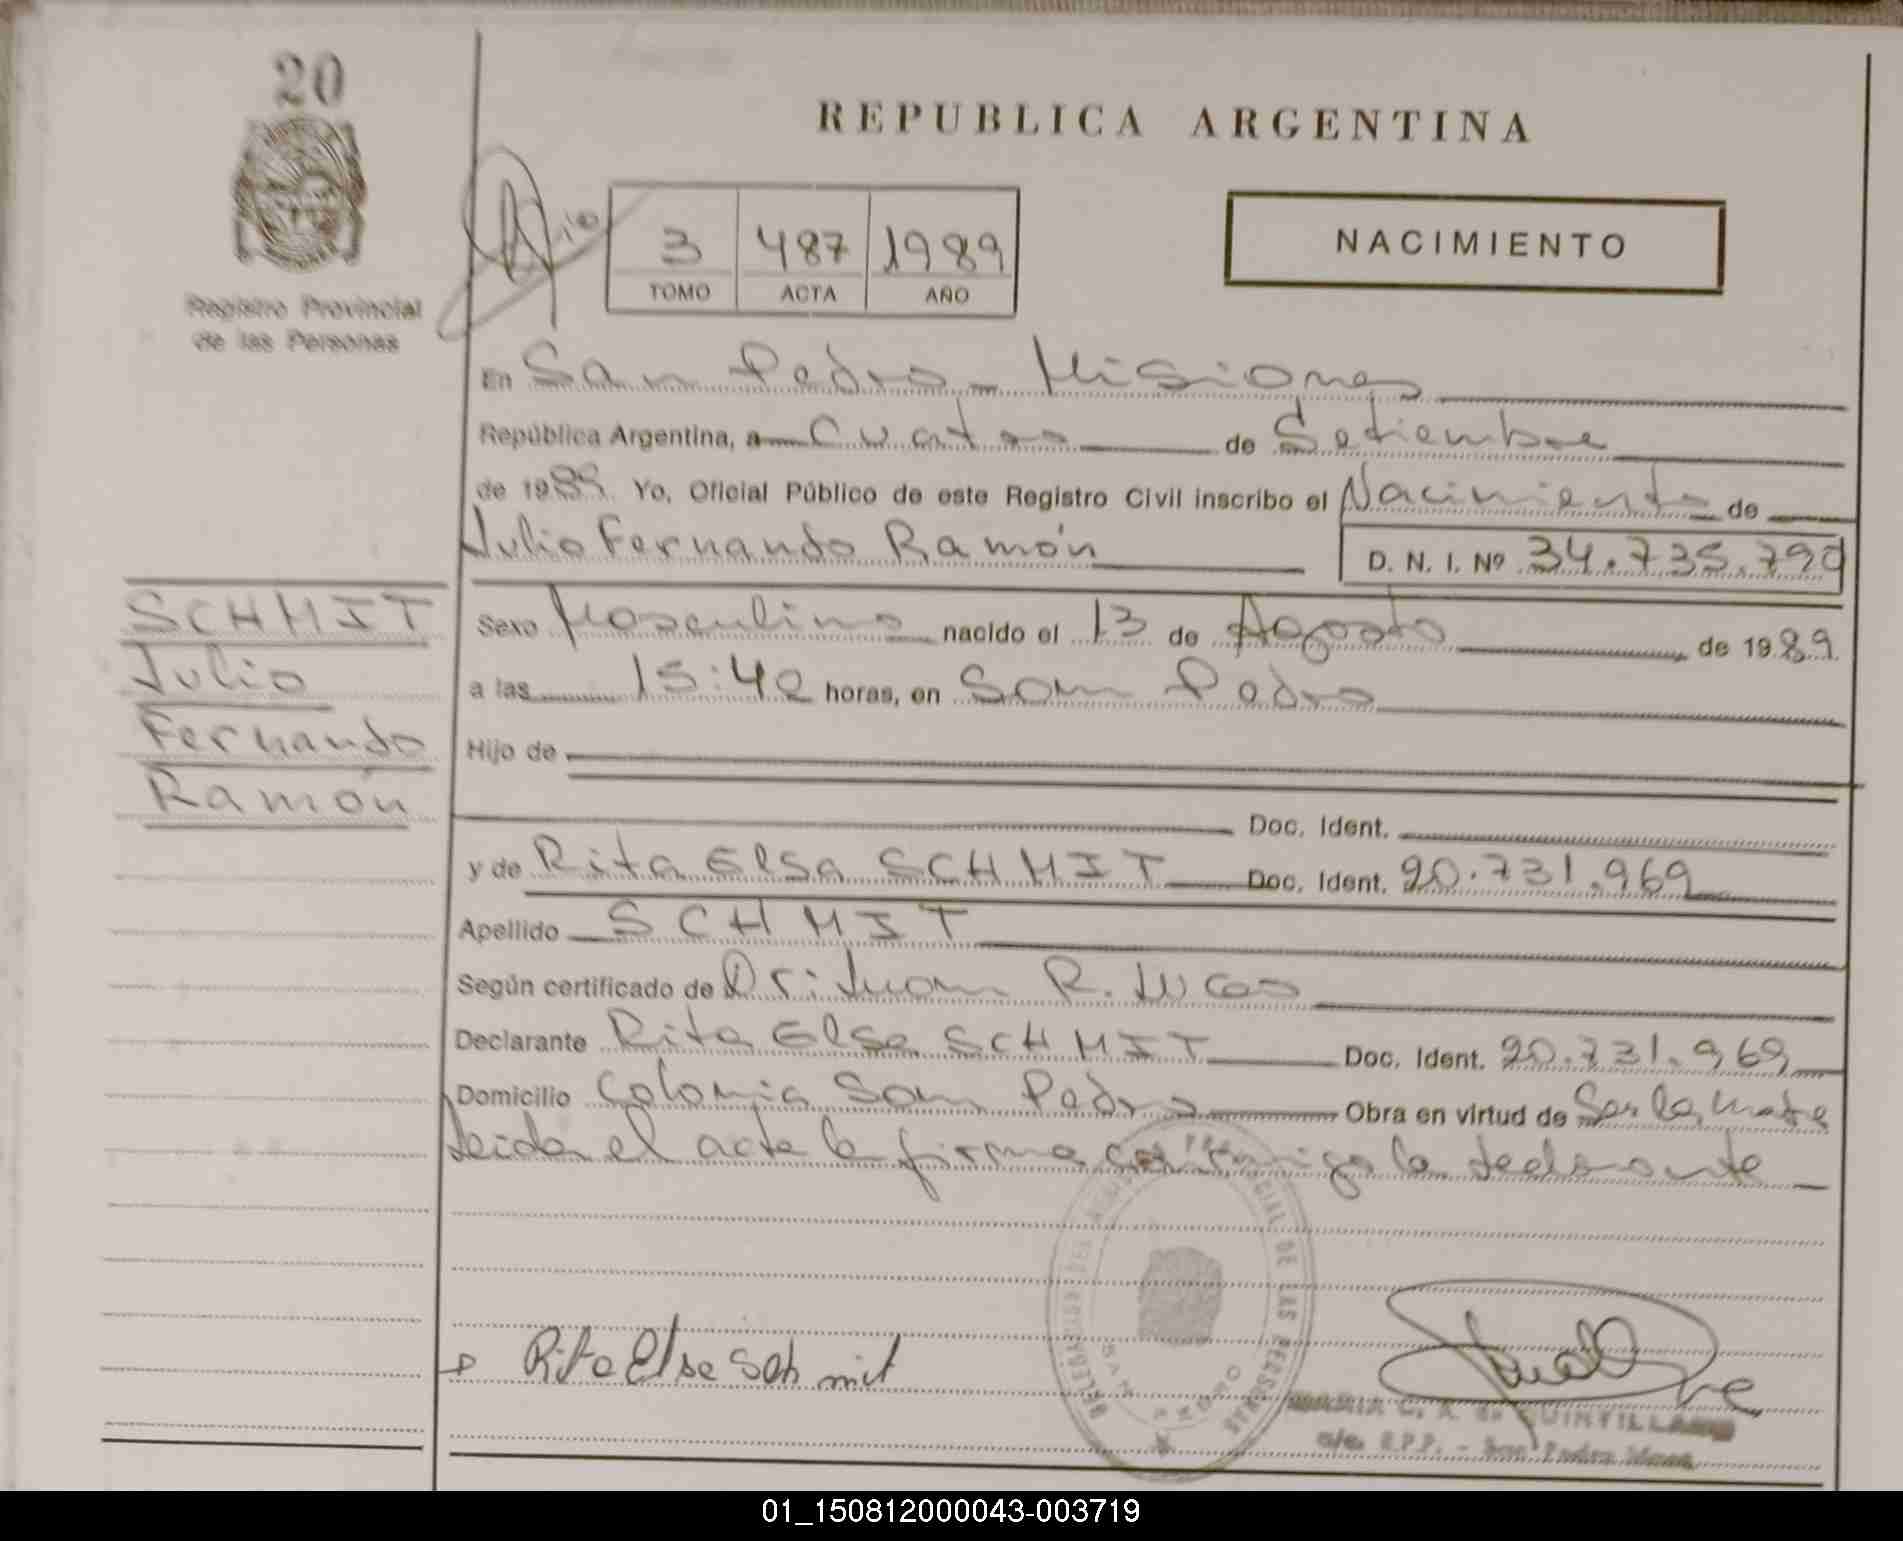 20
Registro Provincial
de las Personas
REPUBLICA ARGENTINA
3 487 1989
TOMO ACTA AÑO
NACIMIENTO
En San Pedro - Misiones
República Argentina, a Cuatro de Setiembre
de 1989 Yo, Oficial Público de este Registro Civil inscribo el Nacimiento de
Julio Fernando Ramón D. N. I. Nº 34.735.790
SCHMIT
Julio
Fernando
Ramón
Sexo Masculino nacido el 13 de Agosto de 1989
a las 15:40 horas, en San Pedro
Hijo de
Doc. Ident.
y de Rita Elsa SCHMIT Doc. Ident. 20.731.969
Apellido SCHMIT
Según certificado de Dr: Juan R. Lucas
Declarante Rita Elsa SCHMIT Doc. Ident. 20.731.969
Domicilio Colonia San Pedro Obra en virtud de Ser la madre
Leida el acta la firma conmigo la declarante
DELEGACION DEL REGISTRO PROVINCIAL DE LAS PERSONAS
SAN PEDRO
Rita Elsa Schmit
MARIA C. A. de QUINTILLAN
R.P.P. - San Pedro Mnes.
01_150812000043-003719